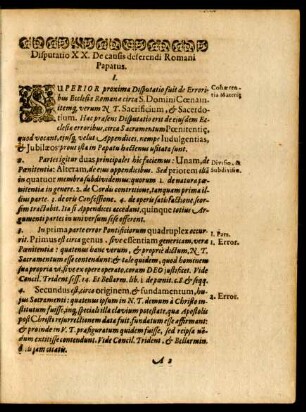 Disputatio XX. De causis deferendi Romani
Papatus.
I.
SUPERIOR proxima Disputatio fuit de Errori-
bus Ecclesiæ Romanæ circa S. Domini Cœnam,
itemq, verum N. T. Sacrificium, & Sacerdo-
tium. Hac præsens Disputatio erit de ejusdem Ec-
clesiæ erroribus, circa Sacramentum Pœnitentiæ,
quod vocant, ejusq, velut Appendices, nempe Indulgentias,
& Jubilæos prout ista in Papatu hactenus usitata sunt.
Cohæren-
tia Materiæ
2. Partes igitur duas principales hic facimus: Unam, de
Pœnitentia: Alteram, de ejus appendicibus. Sed priorem ali
in quatuor membra subdividemus, quorum 1. de natura pœ-
nitentia in genere. 2. de Cordis contritione, tanquam prima il-
lius parte. 3. de oris Confessione. 4. de operis satisfactione, seor-
sim tractabit. Ita si Appendices accedant, quinque totius Ar-
gumenti partes in universum sese offerent.
Divisio, &
Subdivisio.
3. In prima parte error Pontificiorum quadruplex occur-
rit. Primus est circa genus, sive essentiam genericam, vera
Pœnitentia: quatenus hanc verum, & propriè dictum, N. T.
Sacramentum esse contendunt; & tale quidem, quod hominem
sua propria vi, sive ex opere operato, coram DEO justificet. Vide
Concil. Trident. sess. 14. Et Bellarm. lib. 1. de pœnit. c. 8. & seqq.
I. Pars.
1. Error.
4. Secundus est, circa originem, & fundamentum, hu-
jus Sacramenti: quatenus ipsum in N. T. demùm à Christo in-
stitutum fuisse, inq, speciali illa clavium potestate, qua Apostolis
post Christi resurrectionem data fuit, fundatum esse affirmant:
& proinde in V. T. præfiguratum quidem fuisse, sed reipsa non-
dum extitisse contendunt. Vide Concil. Trident. & Bellarmin.
2. Error.
A 2